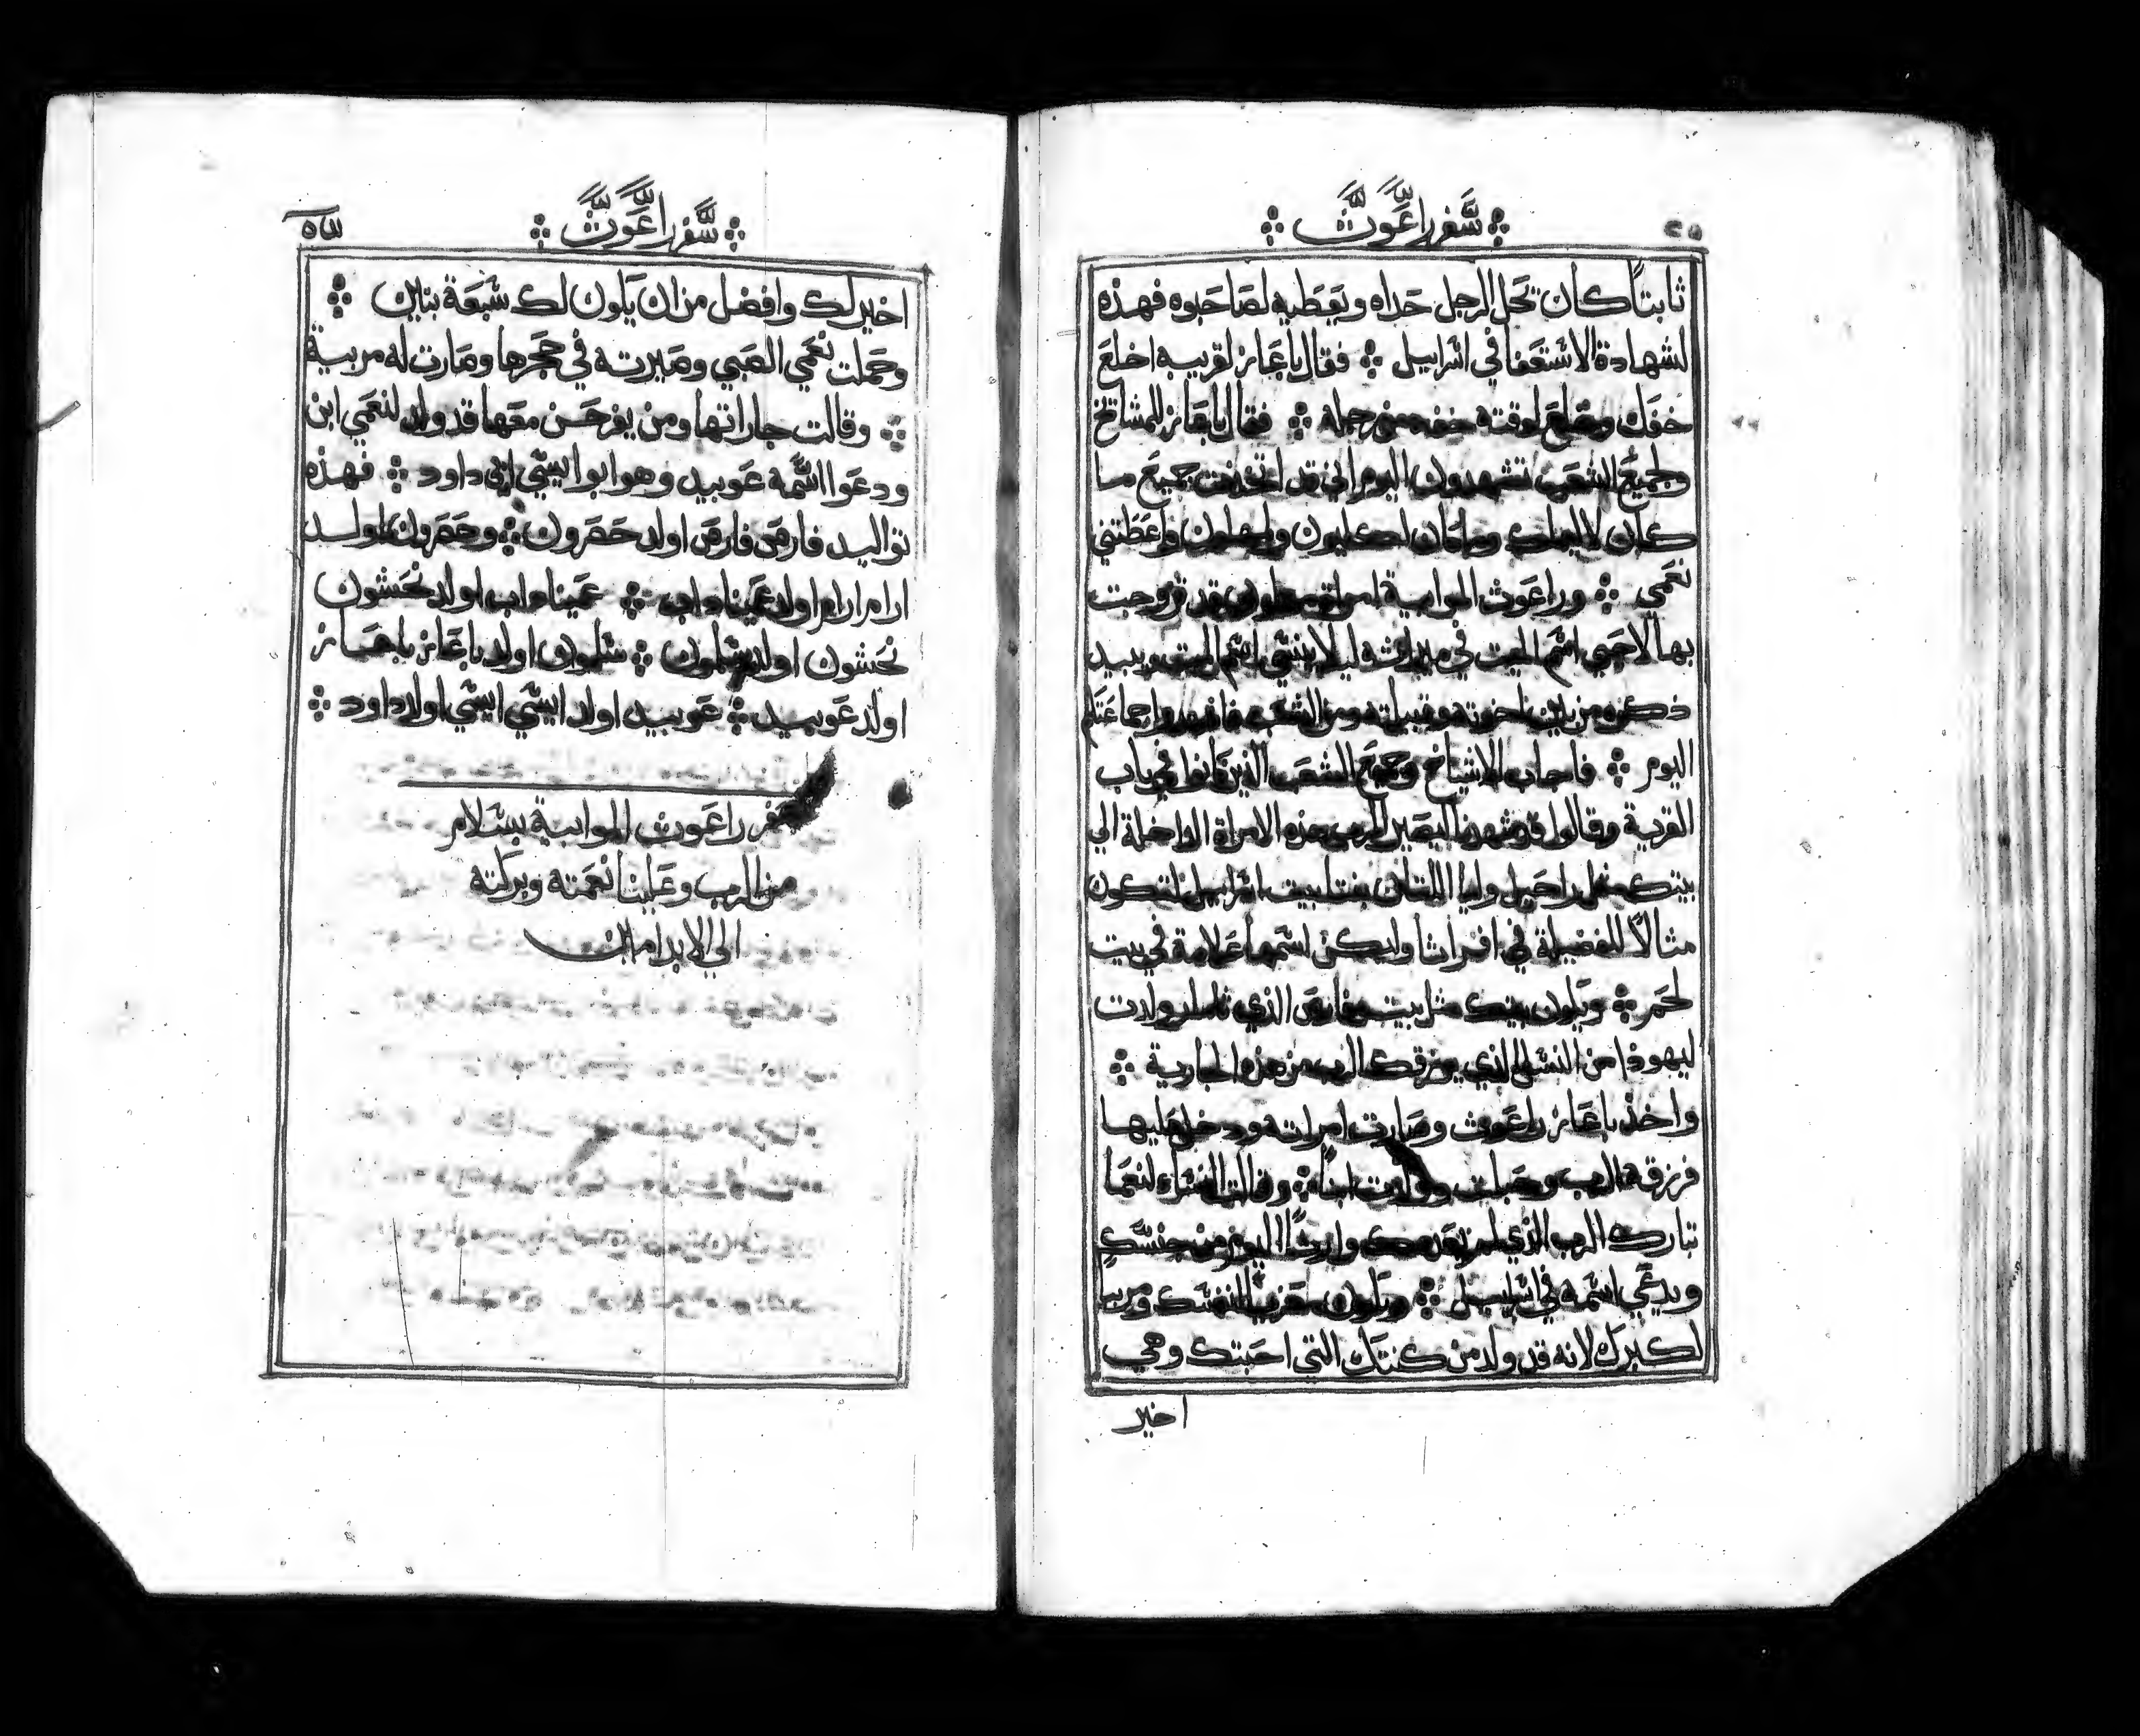 سفر راعوث
ثابتاً كان تحل الرجل حداه ويعطيه لصاحبوه فهذه
لشهادة الاستعفا في اسراييل ⁘ فقال باعاز لقريبه اخلع
خفك وخلع لوقته خفه من رجله ⁘ فقال باعاز للمشايخ
ولجميع الشعب تشهدون اليوم اني قد اخذت جميع ما
كان لاليمالك وما كان لكليون ولمحلون واعطتني
نعمي ⁘ وراعوث الموابية امراة محلون قد تزوجت
بها لاحيي اسم الميت في ميراثه ليلا ينسي اسم الميت ويبيد
ذكره من بين اخوته وقبيلته ومن الشعب فاشهدوا جماعتكم
اليوم ⁘ فاجاب الاشياخ وجميع الشعب الذين كانوا في باب
القرية وقالوا قد شهدنا ليصير الرب هذه الامراة الداخلة الي
بيتك مثل راحيل وليا اللتان بنتا بيت اسراييل لتكون
مثالاً للفضيلة في افراتا وليكن اسمها علامة في بيت
لحم ⁘ ويكون بيتك مثل بيت فارص الذي تامار ولدت
ليهوذا من النسل الذي يرزقك الرب من هذه الجارية ⁘
واخذ باعاز راعوث وصارت امراته ودخل عليها
فرزقها الرب وحبلت وولدت ابناً ⁘ وقالت النساء لنعما
تبارك الرب الذي لم يعدمك وارثاً اليوم من جنسك
ويدعي اسمه في اسراييل ⁘ ويكون معزي لنفسك ومربي
لكبرك لانه قد ولد من كنتك التي احبتك وهي
اخير
سفر راعوث
اخير لك وافضل من ان يكون لك سبعة بنين ⁘
وحملت نعمي الصبي وصيرته في حجرها وصارت له مربية
⁘ وقالت جاراتها ومن يفرحن معها قد ولد لنعمي ابن
ودعوا اسمه عوبيد وهو ابو ايسي ابي داود ⁘ فهذه
تواليد فارص فارص اولد حصرون ⁘ وحصرون اولد
ارام ارام اولد عميناداب ⁘ عميناداب اولد نحشون
نحشون اولد سلمون ⁘ سلمون اولد باعاز باعاز
اولد عوبيد ⁘ عوبيد اولد ايسي ايسي اولد داود ⁘
سفر راعوث الموابية بسلام
من الرب وعلينا نعمته وبركته
الي الابد امين